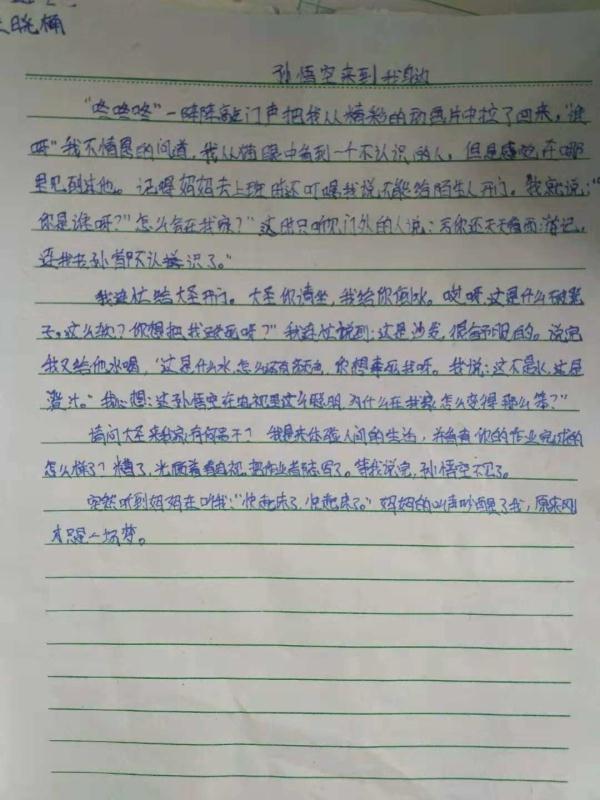 晓楠
孙悟空来到我身边
“咚咚咚”一阵阵敲门声把我从精彩的动画片中拉了回来,“谁
呀”我不情愿的问道,我从猫眼中看到一个不认识的人,但是感觉在哪
里见到过他。记得妈妈去上班时还叮嘱我说不能给陌生人开门。我就说:“
你是谁呀?”怎么会在我家?”这时只听见门外的人说:亏你还天天看西游记,
连我老孙都不认识了。”
我连忙给大圣开门。大圣你请坐,我给你倒水。哎呀,这是什么破凳
子,这么软?你想把我跌死呀?”我连忙说到:这是沙发,很舒服的。说完
我又给他水喝,“这是什么水,怎么还有颜色,你想毒死我呀。我说:这不是水,这是
橙汁。”我心想:这孙悟空在电视里这么聪明,为什么在我家怎么变得那么笨?”
请问大圣来我家有何贵干?我是来体验人间的生活,并看看你的作业完成的
怎么样了?糟了,光顾着看电视,把作业都忘写了。等我说完,孙悟空不见了。
突然听到妈妈在叫我:“快起来了,快起来了。”妈妈的叫声吵醒了我,原来刚
才只是一场梦。